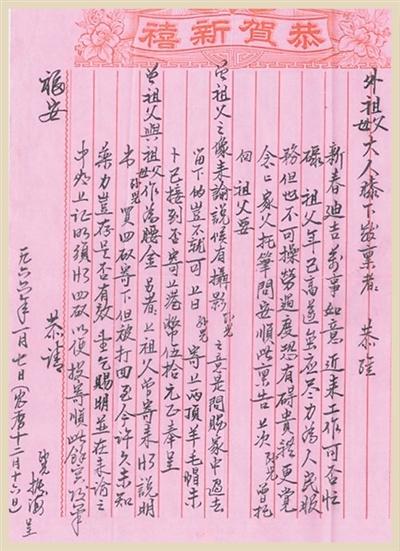 恭賀新禧
外祖父母大人膝下敬稟者 恭維
新春迪吉萬事如意近來工作可否忙
碌 祖父年已高邁虽應尽力為人民服
務但也不可操勞過度恐有碍貴體更覺
念々家父托筆問安順此稟告上次孫兒曾托
伯祖父要
曾祖父之像來諭說候有攝影 之意 中過去
留下的豈不就可上日孫兒寄上兩頂羊毛帽未
卜已接到否寄上港幣伍拾元已奉呈
曾祖父與祖父母作為腰金 上祖父曾寄來 說明
書孫兒買四 寄下但被打回至今許久未知
藥力豈存是否有效 乞賜明並在来諭之
中夾上证明須 四 以便投寄順此餘言後筆
恭請
福安
一九六六年一月七日(农历十二月十六日)
孫兒 振 呈